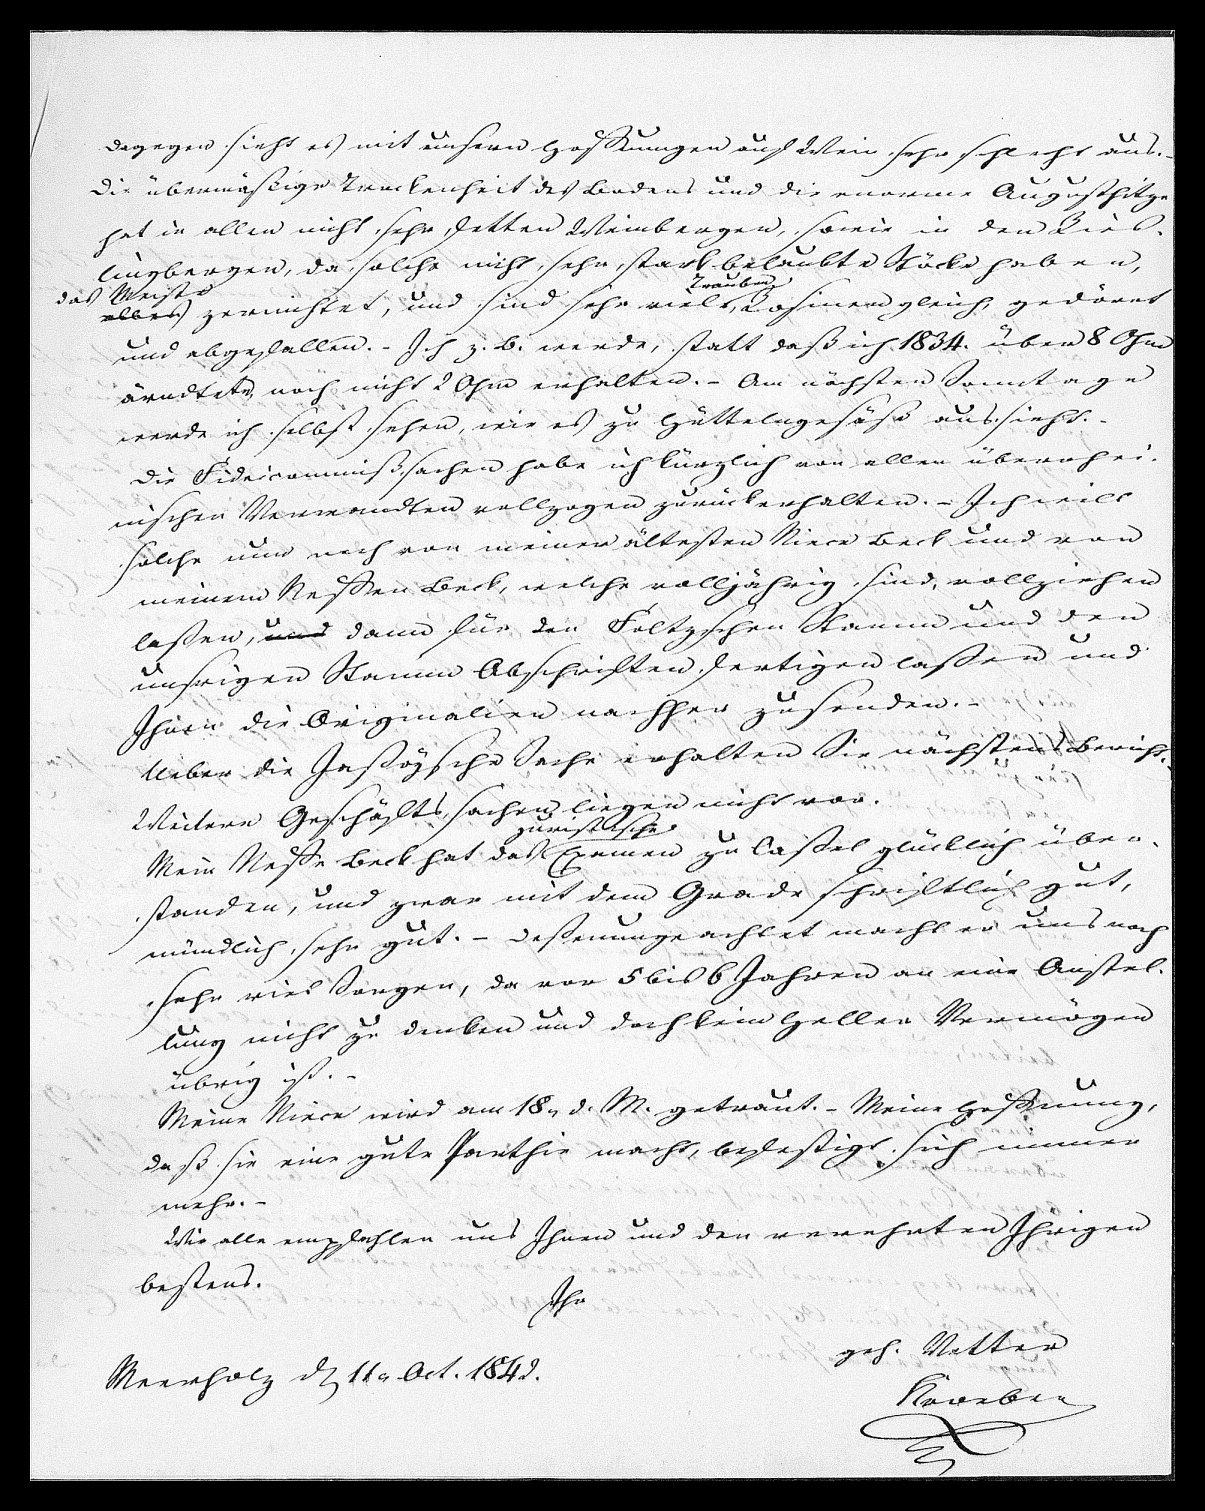 dagegen sieht es mit unsern Hoffnungen auf Wein sehr schlecht aus. -
Die übermäßige Trockenheit des Bodens und die enorme Augusthitze
hat in allen nicht sehr fetten Weinbergen, sowie in den Ries-
lingbergen, da solche nicht sehr stark belaubte Stöcke haben,
das Meiste
alles zernichtet, und sind sehr viele Trauben, Rosinen gleich, gedörrt
und abgefallen. - Ich z. B. werde, statt daß ich 1834. über 8 Ohm
ärndtete, noch nicht 2 Ohm erhalten. - Am nächsten Sonntage
werde ich selbst sehen, wie es zu Hüttelngesäß aussieht. -
Die Fideicommißsachen habe ich kürzlich von allen überrhei-
nischen Verwandten vollzogen zurückerhalten. - Ich will
solche nun noch von meiner ältesten Niece Beck und von
meinem Neffen Beck, welche volljährig sind, vollziehen
laßen, und dann für den Foltzschen Stamm und den
unsrigen Stamm Abschriften fertigen laßen und
Ihnen die Originalien nachher zusenden. -
Ueber die Jaßoysche Sache erhalten Sie nächstens Bericht. -
Weitere Geschäftssachen liegen nicht vor.
Mein Neffe Beck hat das juristische Examen zu Caßel glücklich über-
standen, und zwar mit dem Grade schriftlich gut,
mündlich sehr gut. - Deßenungeachtet macht er uns noch
sehr viel Sorgen, da vor 5 bis 6 Jahren an eine Anstel-
lung nicht zu denken und doch kein Heller Vermögen
übrig ist. -
Meine Niece wird am 18. d. M. getraut. - Meine Hoffnung,
daß sie eine gute Parthie macht, befestigt sich immer
mehr. -
Wir alle empfehlen uns Ihnen und den verehrten Ihrigen
bestens.
Ihr
geh. Vetter
Meerholz d 11. Oct. 1842.